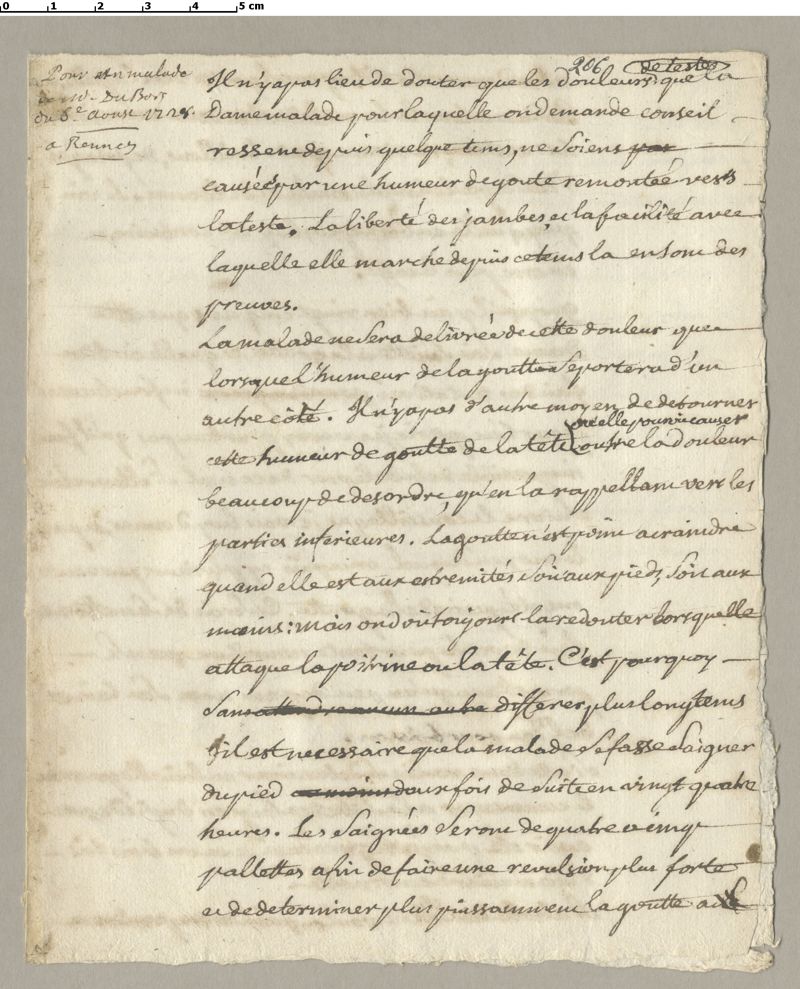 0 1 2 3 4 5 cm
206 de teste
Pour une malade
de Mr. Du Bois
du 6e. Aoust 172
a Rennes
Il n'y a pas lieu de douter que les douleurs que la
Dame malade pour laquelle on demande conseil
ressent depuis quelque tems, ne soient pas
causées par une humeur de goute remontée vers
la teste. La liberté des jambes, et la facilité avec
laquelle elle marche depuis ce tems la en sont des
preuves.
La malade ne sera delivrée de cette douleur que
lorsque l'humeur de la goutte se portera d'un
autre côté. Il n'y a pas d'autre moyen de detourner
qu'elle pourroit causer
cette humeur de goutte de la tête outre la douleur
beaucoup de desordre, qu'en la rappellant vers les
parties inferieures. La goutte n'est point a craindre
quand elle est aux extremités soit aux pieds, soit aux
mains: mais on doit toujours la redouter lorsquelle
attaque la poitrine ou la tête. C'est pourquoy
sans attendre aucun autre differer plus longtems
il est necessaire que la malade se fasse saigner
du pied au moins deux fois de suite en vingt quatre
heures. Les saignées seront de quatre a cinq
pallettes afin de faire une revulsion plus forte
et de determiner plus puissamment la goutte a